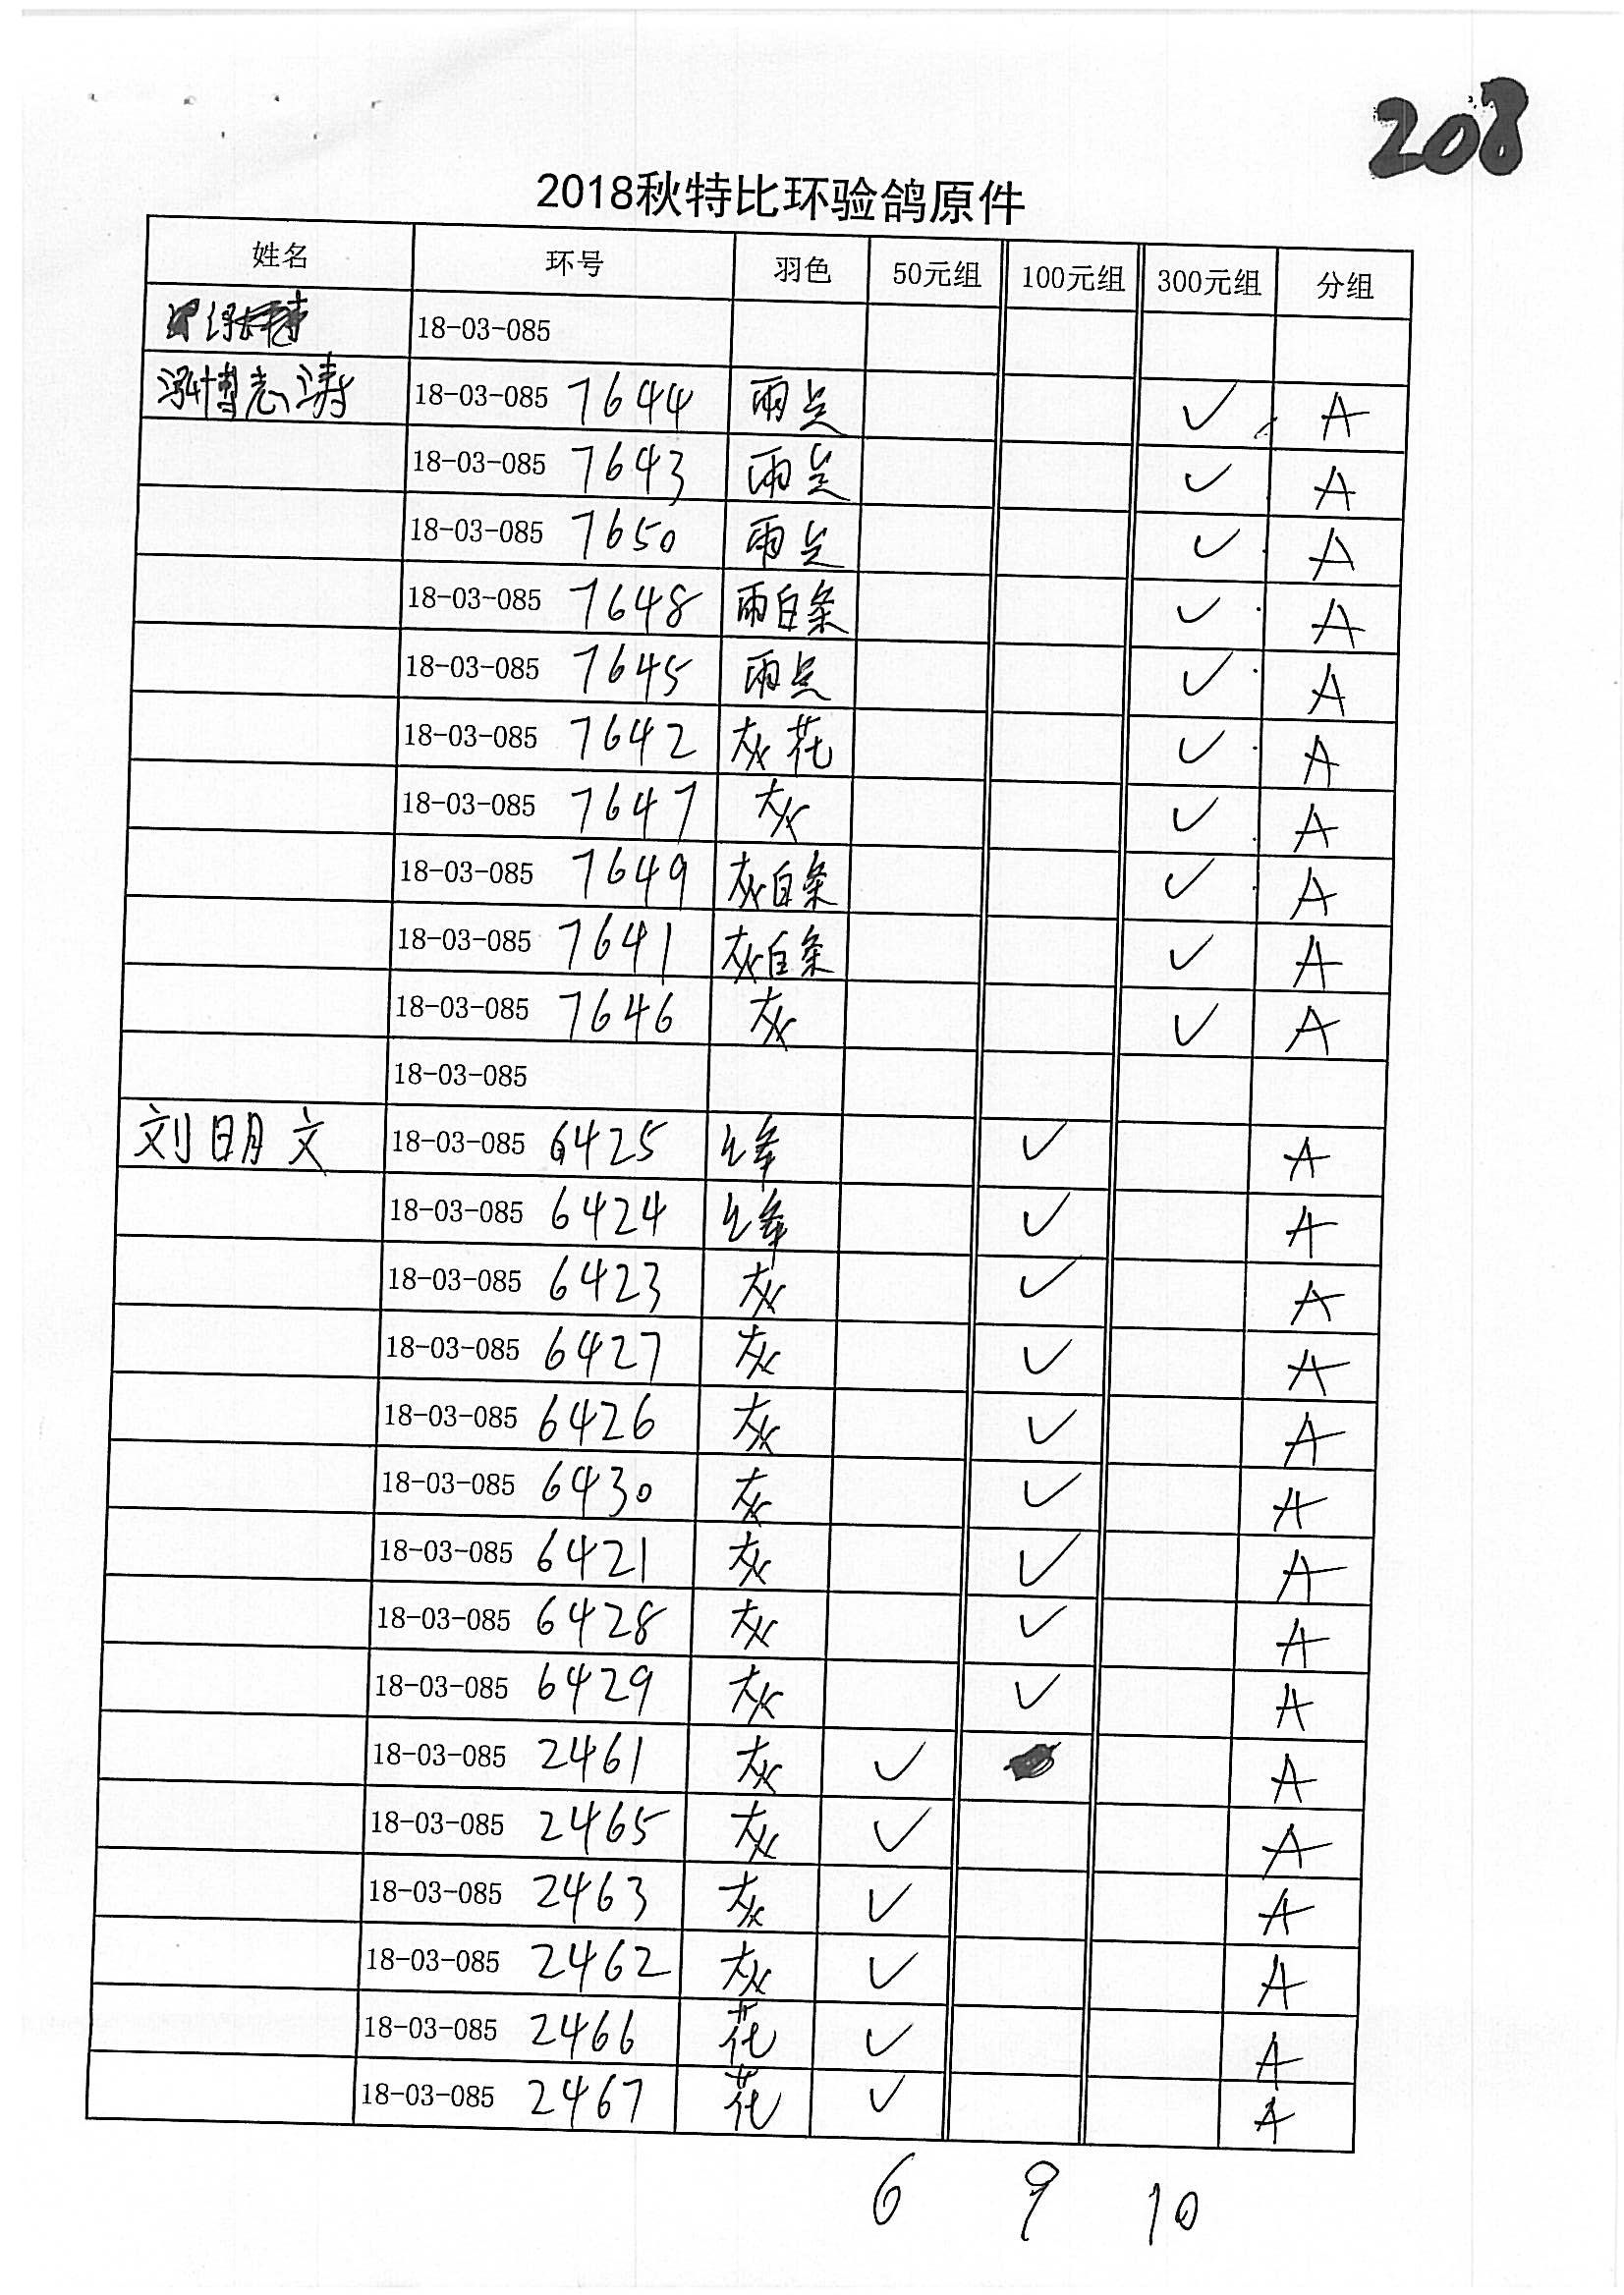 208
2018秋特比环验鸽原件
姓名 环号 羽色 50元组 100元组 300元组 分组
18-03-085
博志涛 18-03-085 7644 雨点 ✓ A
18-03-085 7643 雨点 ✓ A
18-03-085 7650 雨点 ✓ A
18-03-085 7648 雨白条 ✓ A
18-03-085 7645 雨点 ✓ A
18-03-085 7642 灰花 ✓ A
18-03-085 7647 灰 ✓ A
18-03-085 7649 灰白条 ✓ A
18-03-085 7641 灰白条 ✓ A
18-03-085 7646 灰 ✓ A
18-03-085
刘明文 18-03-085 6425 绛 ✓ A
18-03-085 6424 绛 ✓ A
18-03-085 6423 灰 ✓ A
18-03-085 6427 灰 ✓ A
18-03-085 6426 灰 ✓ A
18-03-085 6430 灰 ✓ A
18-03-085 6421 灰 ✓ A
18-03-085 6428 灰 ✓ A
18-03-085 6429 灰 ✓ A
18-03-085 2461 灰 ✓ A
18-03-085 2465 灰 ✓ A
18-03-085 2463 灰 ✓ A
18-03-085 2462 灰 ✓ A
18-03-085 2466 花 ✓ A
18-03-085 2467 花 ✓ A
6 9 10